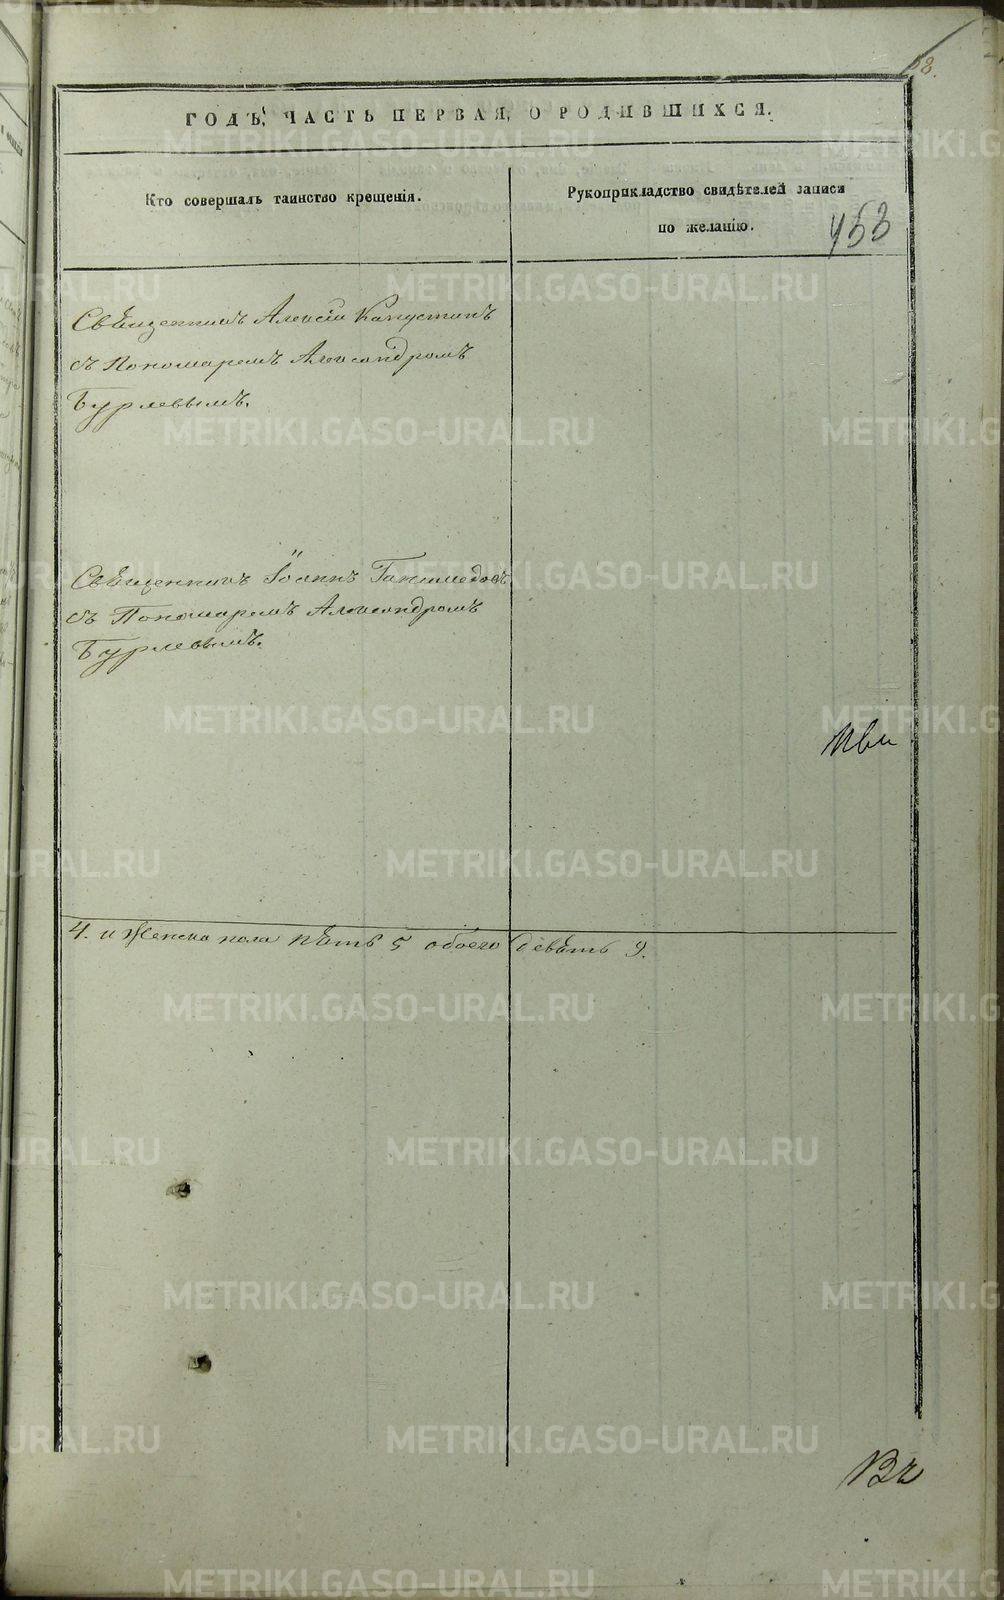 58.
ГОДЪ, ЧАСТЬ ПЕРВАЯ, О РОДИВШИХСЯ.
Кто совершалъ таинство крещенія.
Рукоприкладство свидѣтелей записи
по желанію.
453
Свѣщенникъ Алексій Капустинъ
съ Пономаремъ Александромъ
Бурлевымъ.
Свѣщенникъ Іоаннъ Ганимедовъ
съ Пономаремъ Александромъ
Бурлевымъ.
4. и женска пола пѣть 5 обоего девѣть 9.
METRIKI.GASO-URAL.RU